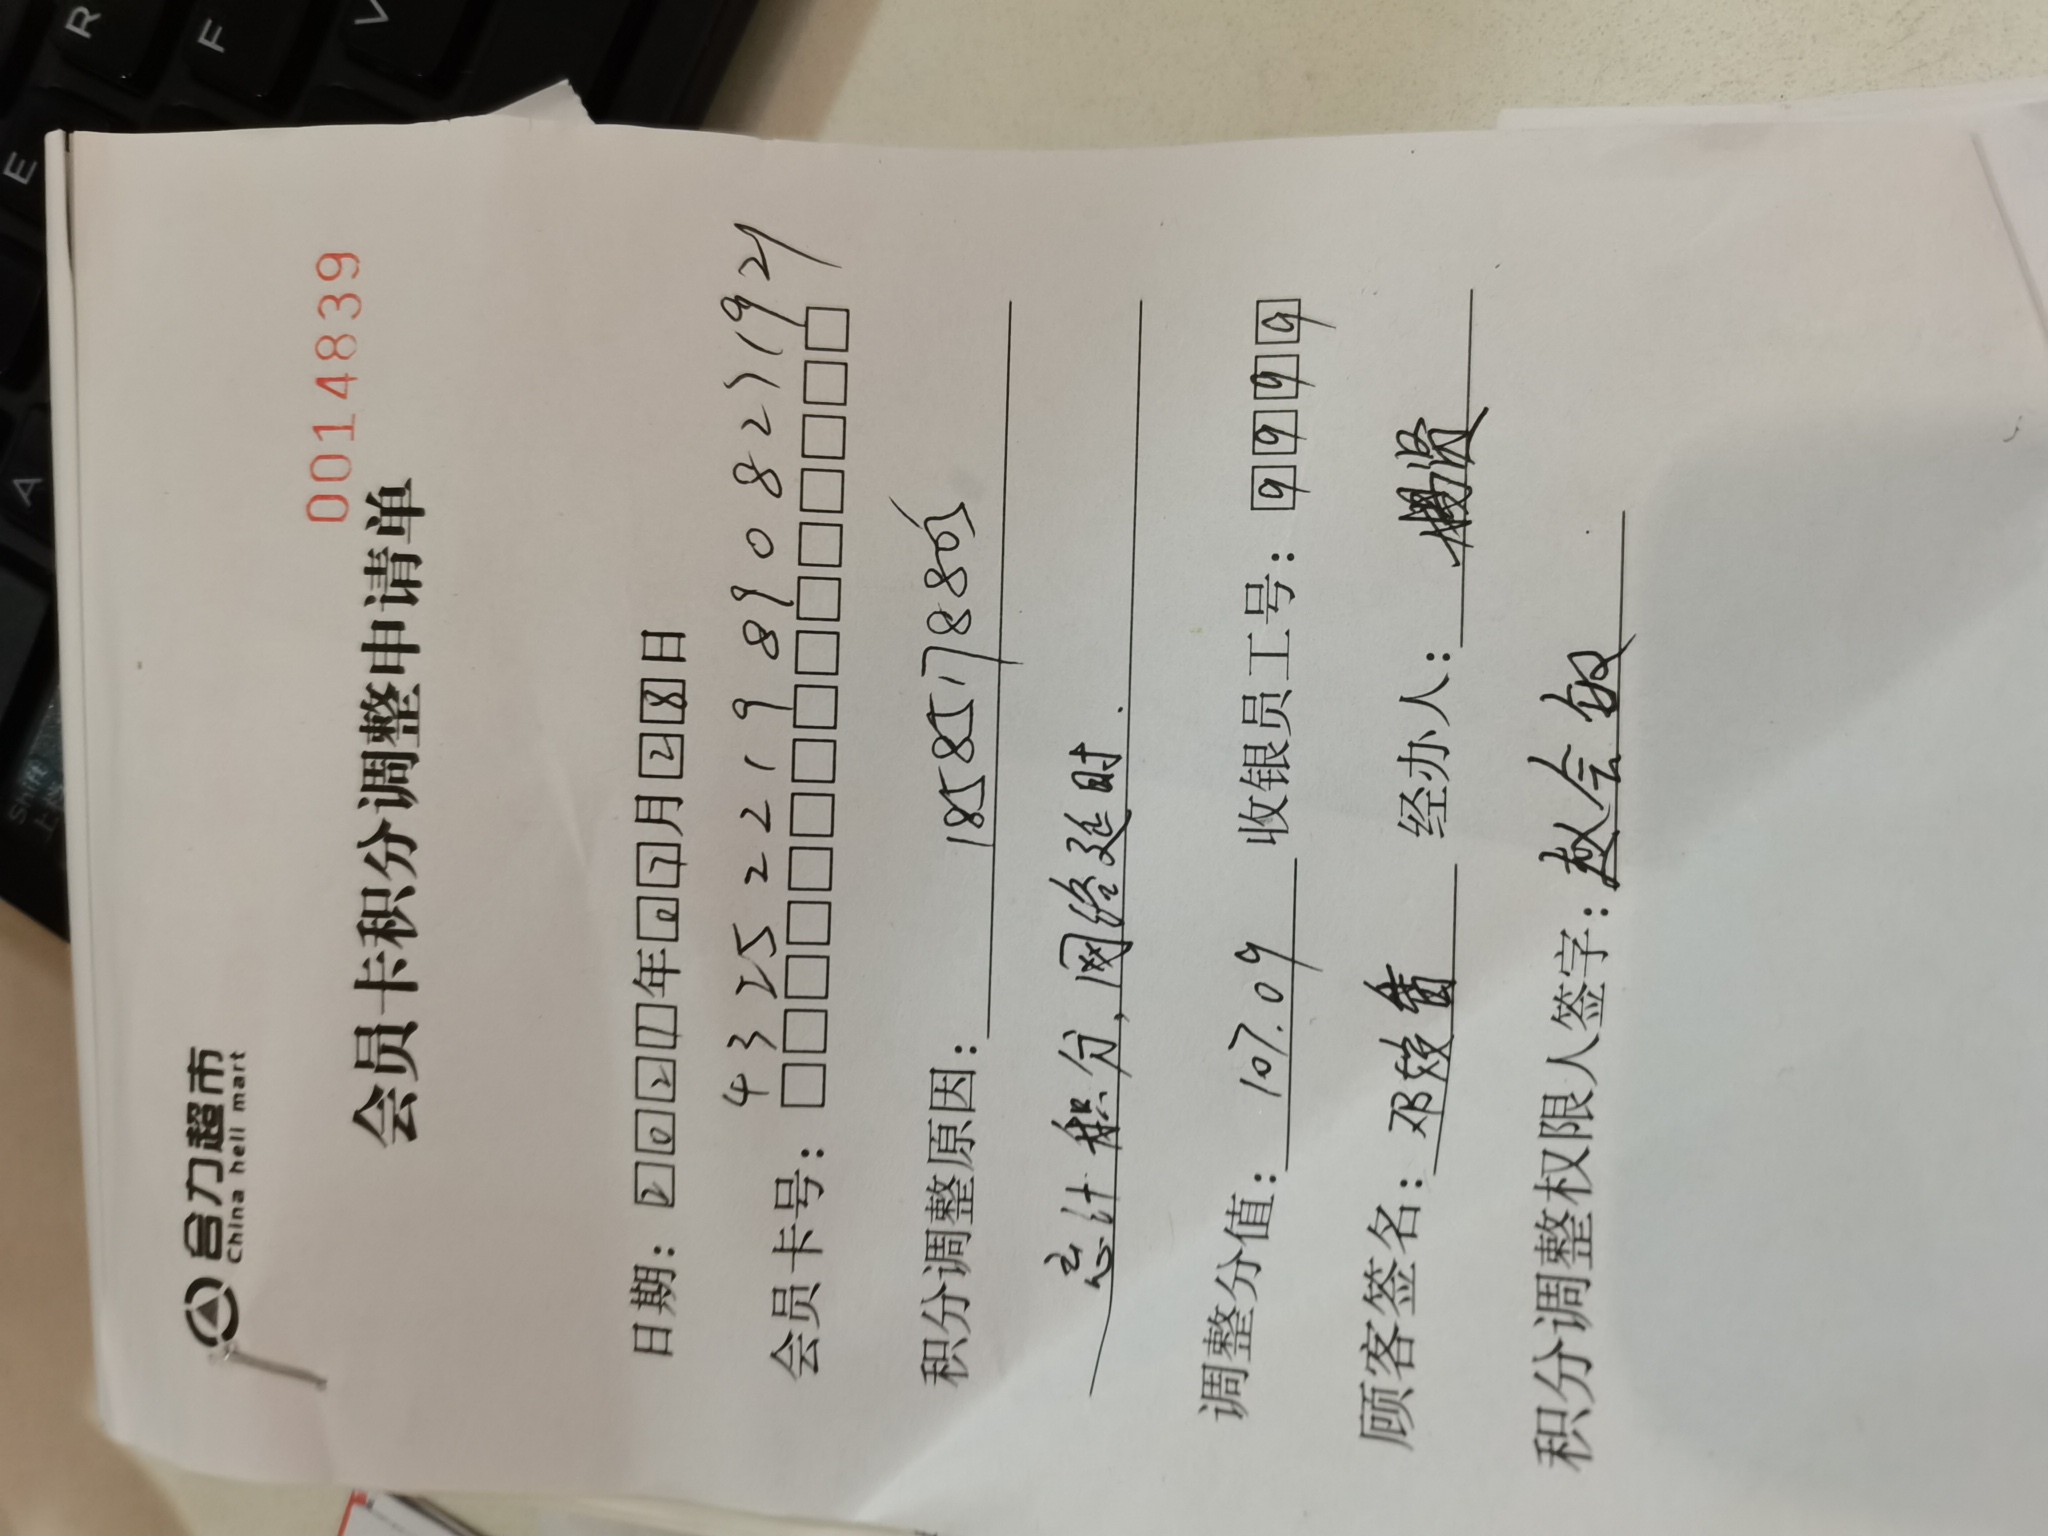 合力超市
China heli mart
0014839
会员卡积分调整申请单
日期：2021年07月28日
会员卡号：
积分调整原因：
忘计积分，网络延时.
调整分值：107.09 收银员工号：9999
顾客签名：邓 经办人：
积分调整权限人签字：赵会敏
R
F
V
E
A
Shift